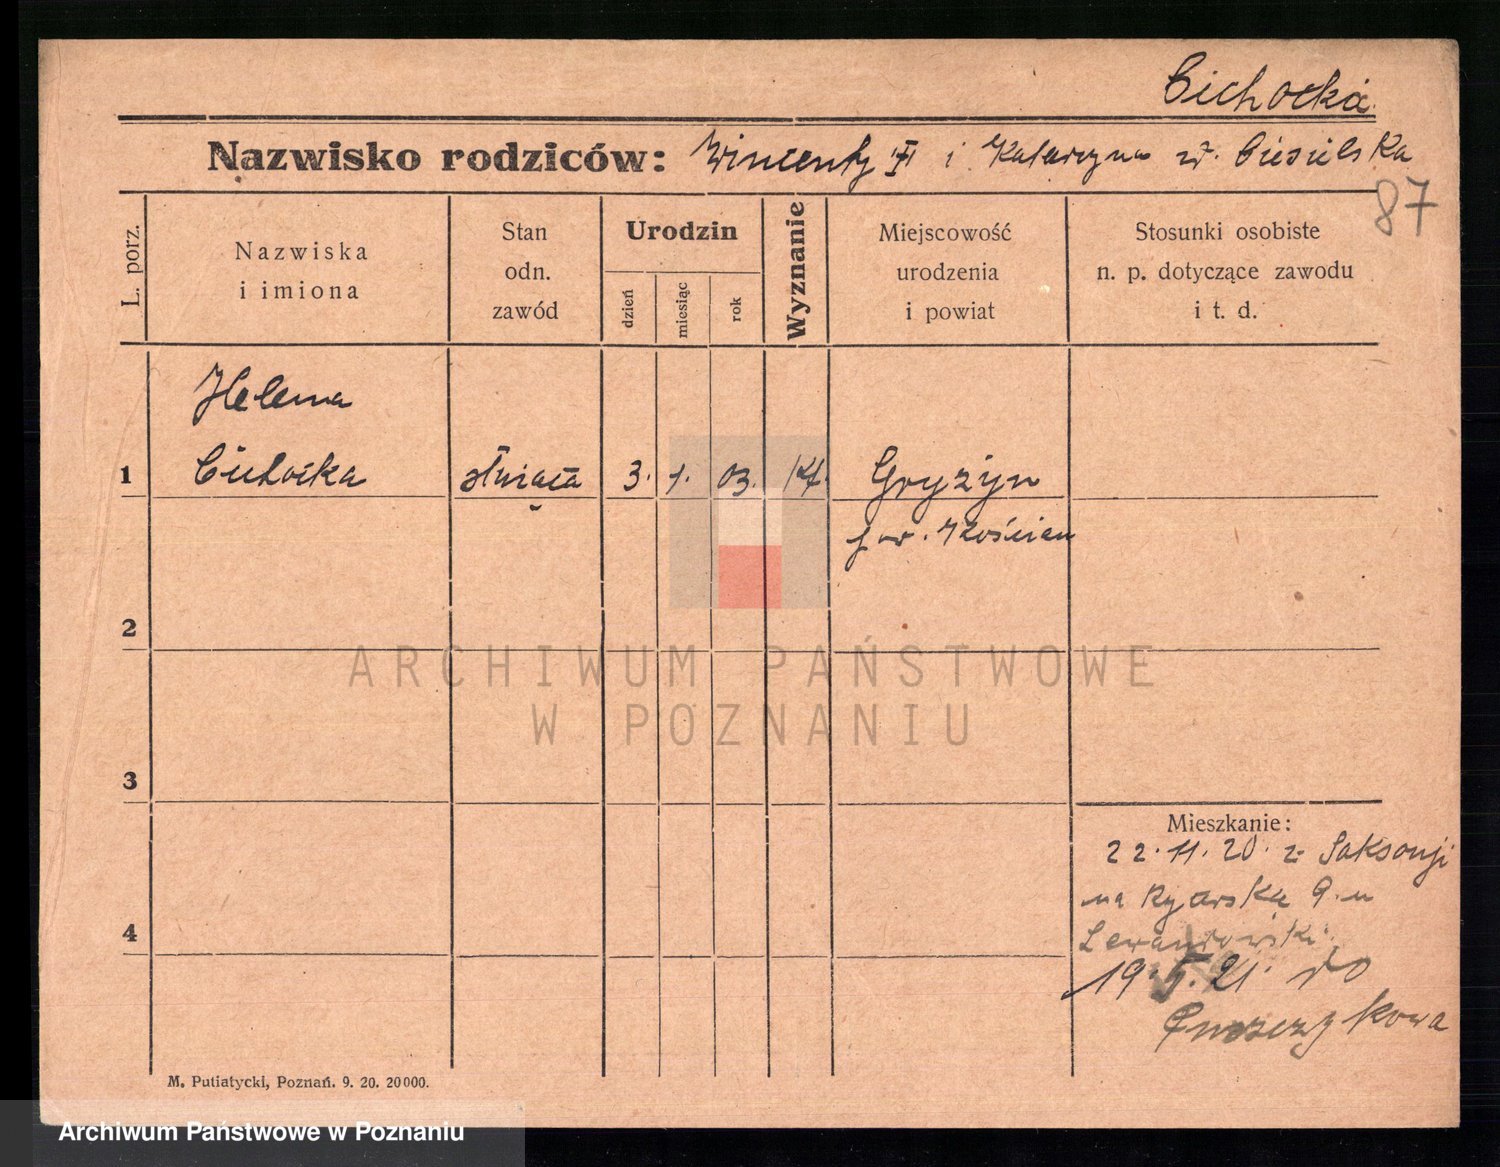 Cichocka
Nazwisko rodziców: Wincenty i Katarzyna Ciesielska
87
L. porz.
Nazwiska
i imiona
Stan
odn.
zawód
Urodzin
dzień
miesiąc
rok
Wyznanie
Miejscowość
urodzenia
i powiat
Stosunki osobiste
n. p. dotyczące zawodu
i t. d.
Helena
1 Cichocka służąca 3. 1. 03. K. Gryżyn
pow. Kościan
2
ARCHIWUM PAŃSTWOWE
W POZNANIU
3
Mieszkanie:
22.11.20. z Saksonji
na Rycerska 9. u
4 Lewandowski
19.5.21. do
M. Putiatycki, Poznań. 9. 20. 20000.
Archiwum Państwowe w Poznaniu